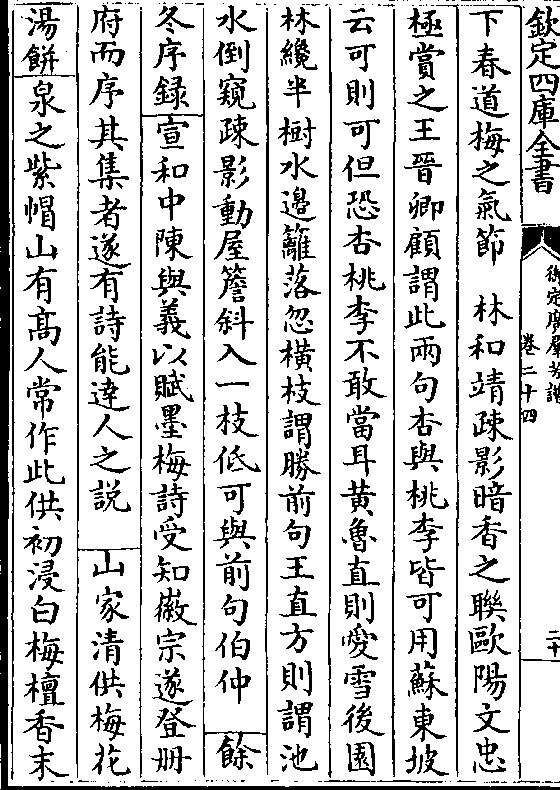 欽定四庫全書
御定廣羣芳譜
卷二十四
二十
下春道梅之氣節　林和靖疎影暗香之聯歐陽文忠
極賞之王晉卿顧謂此兩句杏與桃李皆可用蘇東坡
云可則可但恐杏桃李不敢當耳黃魯直則愛雪後園
林纔半樹水邉籬落忽橫枝謂勝前句王直方則謂池
水倒窺疎影動屋簷斜入一枝低可與前句伯仲　餘
冬序録宣和中陳與義以賦墨梅詩受知徽宗遂登冊
府而序其集者遂有詩能達人之説　山家清供梅花
湯餅泉之紫帽山有髙人常作此供初浸白梅檀香末